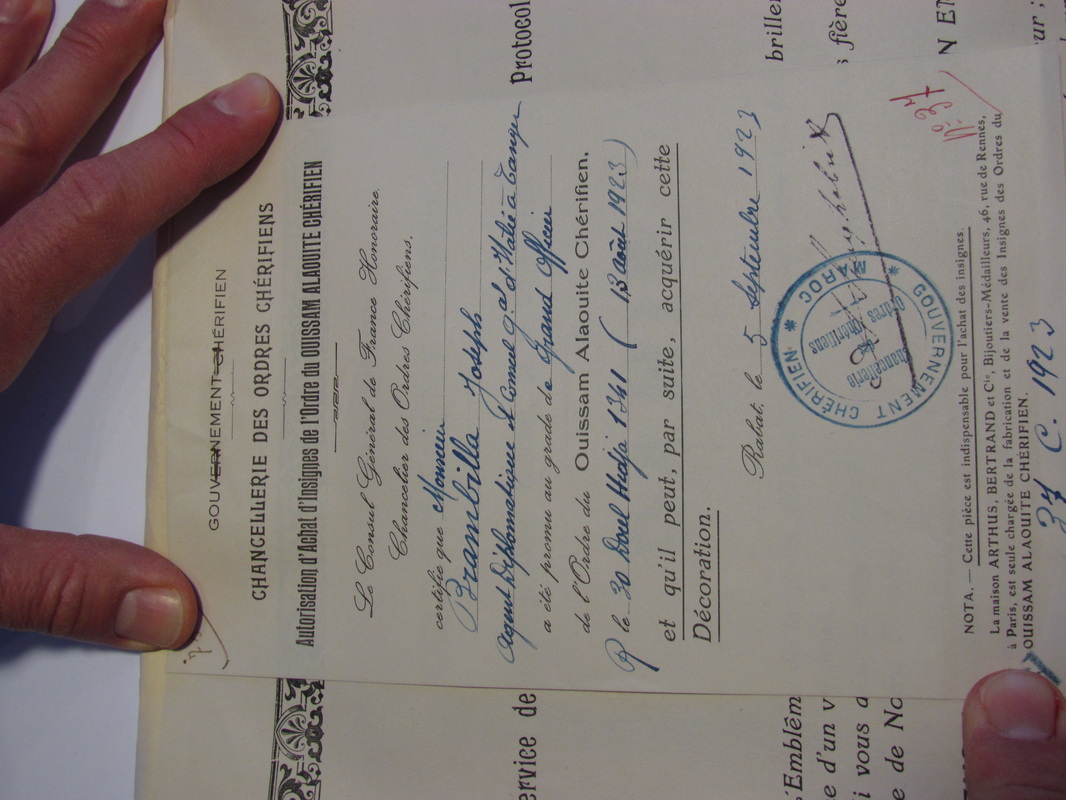 GOUVERNEMENT CHÉRIFIEN
CHANCELLERIE DES ORDRES CHÉRIFIENS
Autorisation d'Achat d'Insignes de l'Ordre du OUISSAM ALAOUITE CHÉRIFIEN
Le Consul Général de France Honoraire,
Chancelier des Ordres Chérifiens.
certifie que Monsieur
Brambilla Joseph
Agent Diplomatique et Consul Gal d'Italie à Tanger
a été promu au grade de Grand Officier
de l'Ordre du Ouissam Alaouite Chérifien.
le 30 Doul Hidja 1341 (13 août 1923)
et qu'il peut, par suite, acquérir cette
Décoration.
Rabat, le 5 Septembre 1923
GOUVERNEMENT CHÉRIFIEN * MAROC *
Chancellerie
Ordres Chérifiens
No 37
NOTA. — Cette pièce est indispensable pour l'achat des insignes.
La maison ARTHUS, BERTRAND et Cie, Bijoutiers-Médailleurs, 46, rue de Rennes,
à Paris, est seule chargée de la fabrication et de la vente des Insignes des Ordres du
OUISSAM ALAOUITE CHÉRIFIEN.
37 C. 1923
ervice de
Protocol
'Emblêm
brille
e d'un v
s fière
i vous a
N E
e de No
ur ;